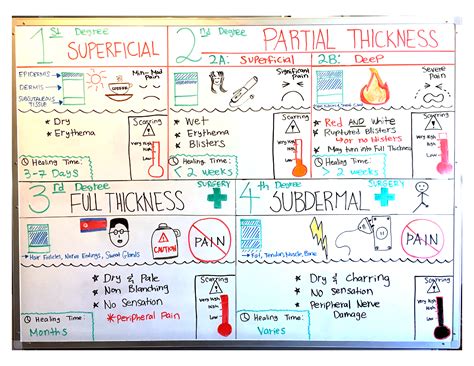 1st Degree
SUPERFICIAL
EPIDERMIS
DERMIS
SUBCUTANEOUS
TISSUE
Min-Mod
Pain
* Dry
* Erythema
Scarring
Very High
High
Low
Healing Time:
3-7 Days
2nd Degree
PARTIAL THICKNESS
2A: Superficial
2B: Deep
Significant
Pain
Severe
Pain
* Wet
* Erythema
* Blisters
Scarring
Very High
High
Low
Healing Time:
< 2 weeks
* Red AND White
* Ruptured Blisters
or no Blisters
* May turn into Full Thickness
Healing Time:
> 2 weeks
Scarring
Very High
High
Low
3rd Degree
SURGERY
FULL THICKNESS
CAUTION
PAIN
Hair Follicles, Nerve Endings, Sweat Glands
* Dry & Pale
* Non Blanching
* No Sensation
* Peripheral Pain
Scarring
Very High
High
Low
Healing Time:
Months
4th Degree
SURGERY
SUBDERMAL
PAIN
Fat, Tendon, Muscle, Bone
* Dry & Charring
* No Sensation
* Peripheral Nerve
Damage
Scarring
Very High
High
Low
Healing Time:
Varies